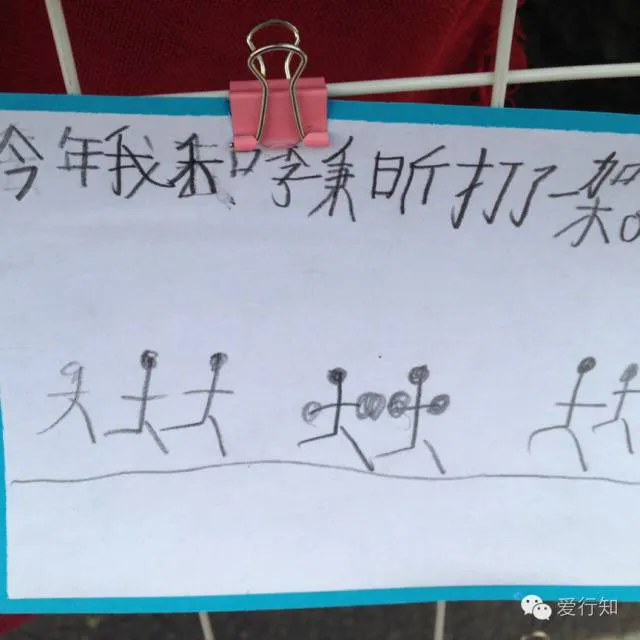 今年我和李秉昕打了架。
爱行知